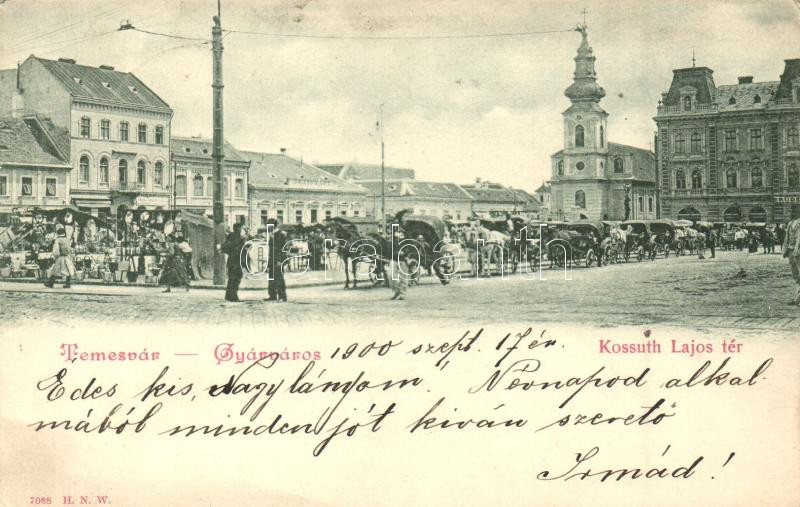 TAUB
darabanth.com
Temesvár — Gyárváros 1900 szept. 17én. Kossuth Lajos tér
Édes kis, Nagylányom! Névnapod alkal-
mából minden jót kiván szerető
Irmád!
7088 H. N. W.